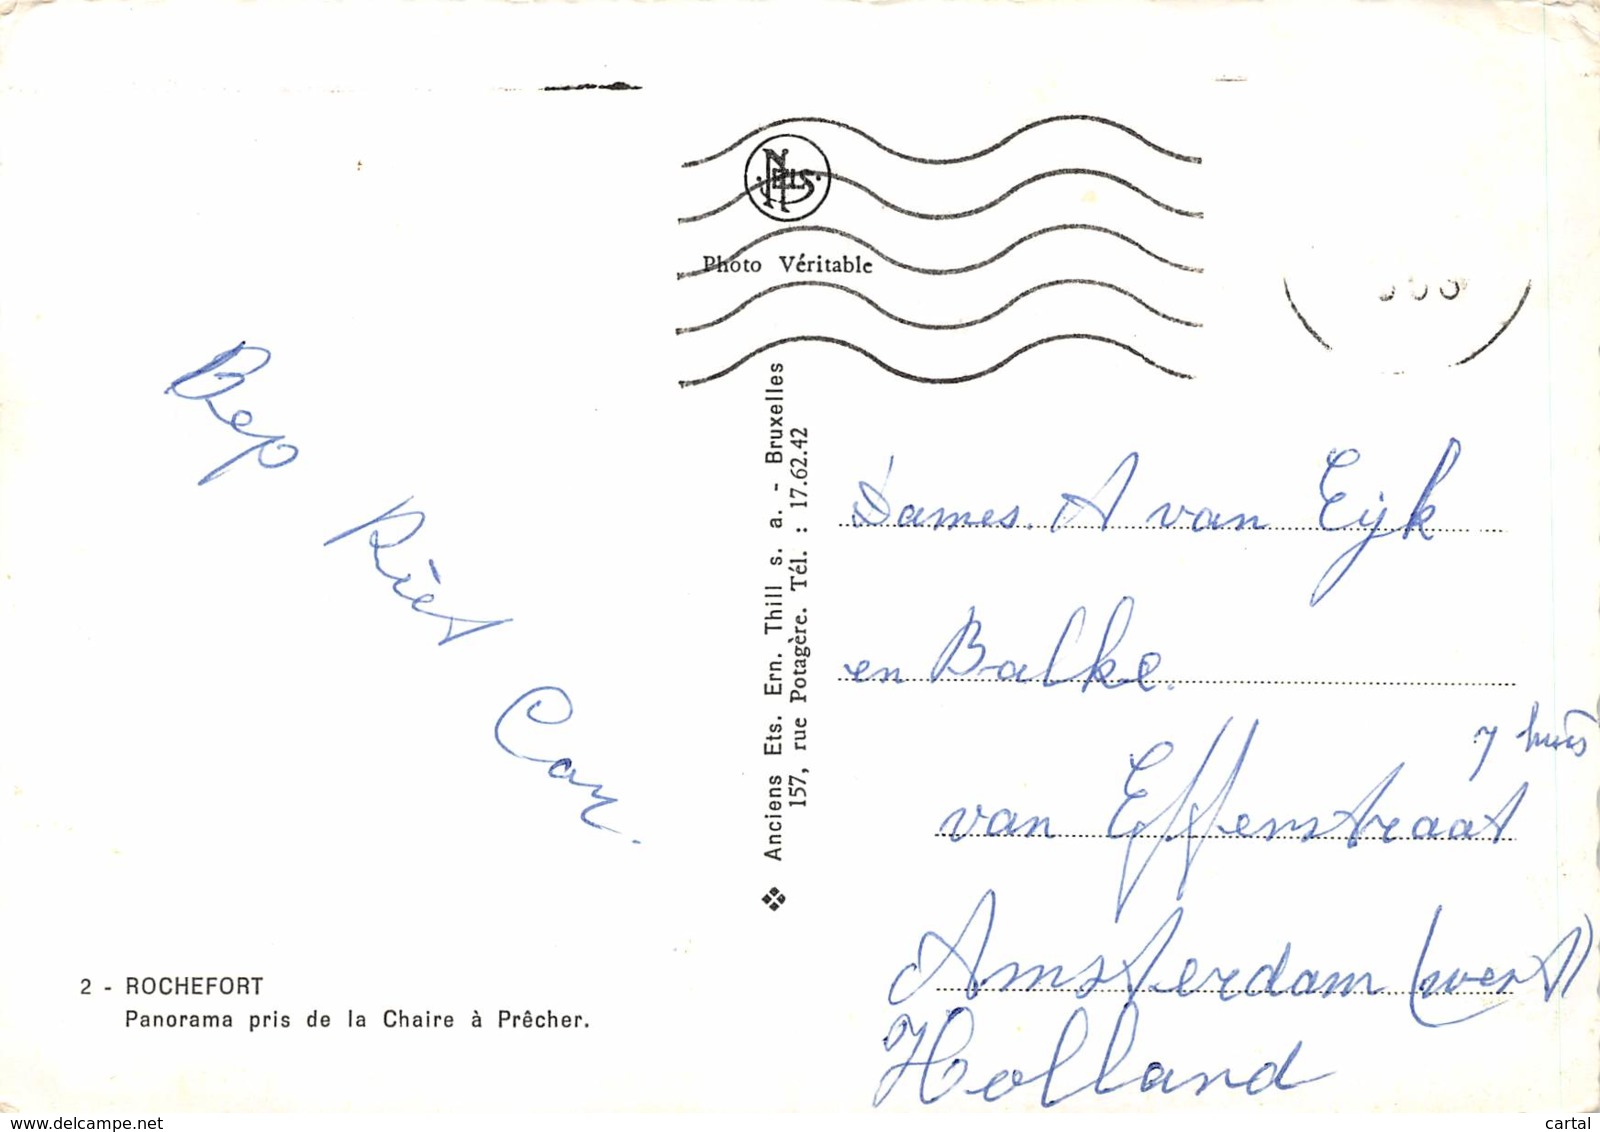 NELS
Photo Véritable
Bep
Riet
Cor.
Anciens Ets. Ern. Thill s. a. - Bruxelles
157, rue Potagère. Tél. : 17.62.42
Dames. A van Eijk
en Balke.
7 huis
van Effenstraat
Amsterdam (west)
Holland
2 - ROCHEFORT
Panorama pris de la Chaire à Prêcher.
www.delcampe.net
cartal